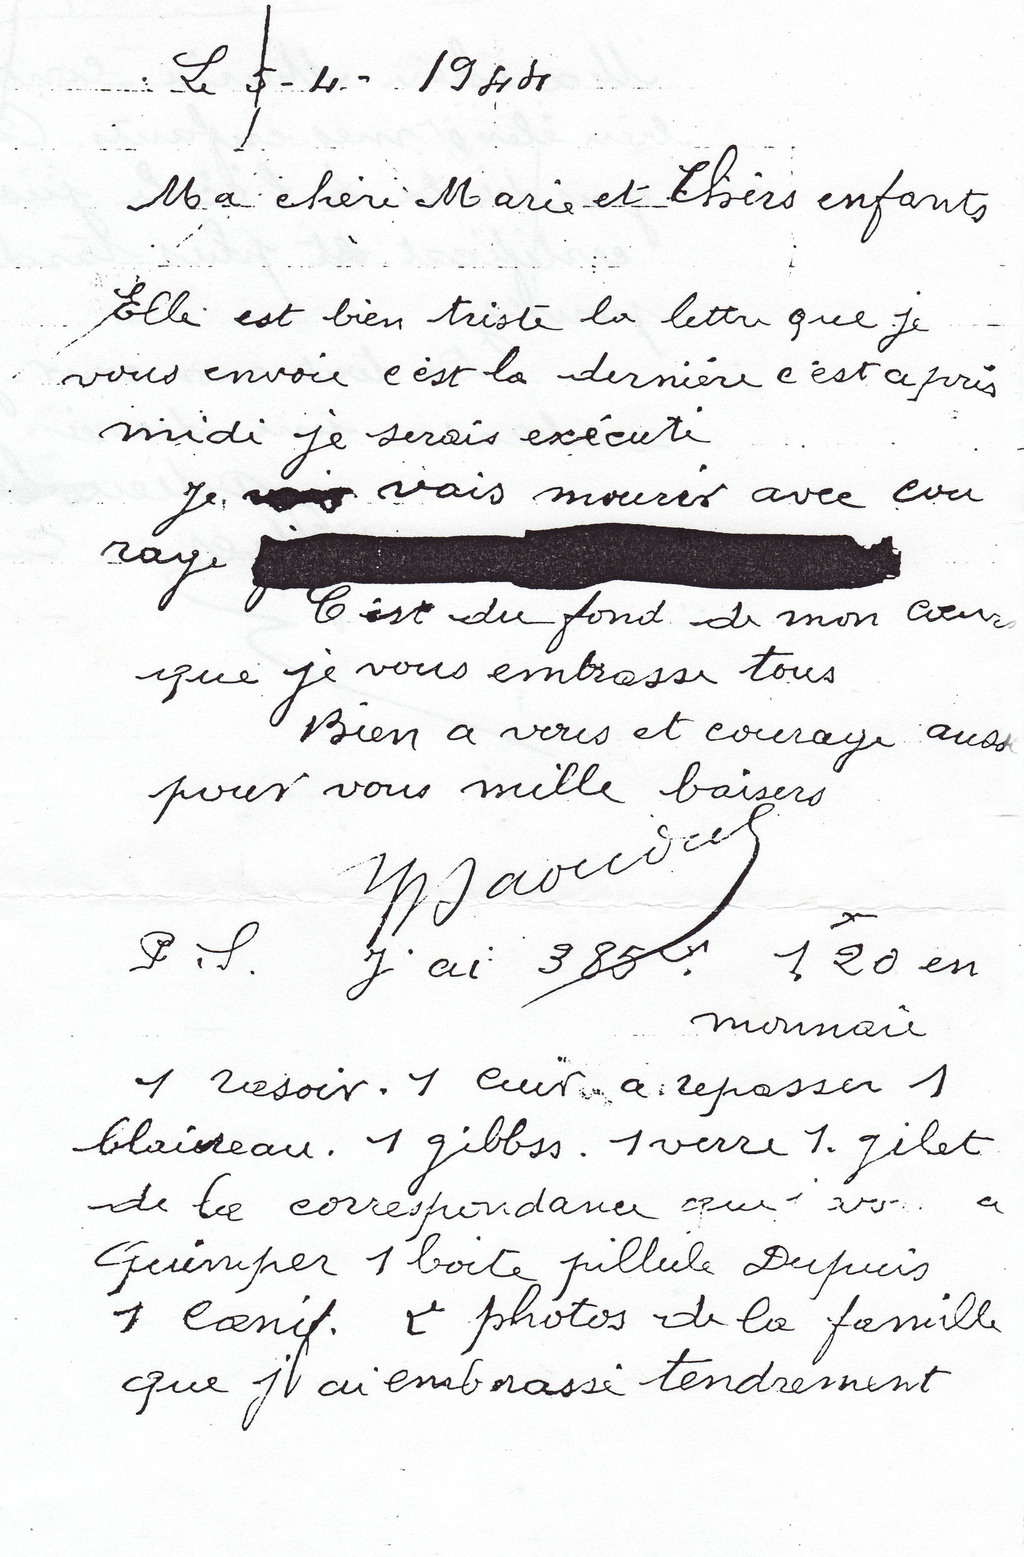 Le 5-4-1944
Ma chéri Marie et Chérs enfants
Elle est bien triste la lettre que je
vous envoie c'est la dernière c'est après
midi je serais exécuté
Je vais mourir avec cou
rage
C'est du fond de mon cœur
que je vous embrasse tous
Bien a vous et courage auss
pour vous mille baisers
P.S. J'ai 385 1,20 en
monnaie
1 rasoir. 1 cuir a repasser 1
blaireau. 1 gibbss. 1 verre 1. gilet
de la correspondance qui a
Quimper 1 boite pillule Dupuis
1 canif. 2 photos de la famille
que j'ai embrassé tendrement